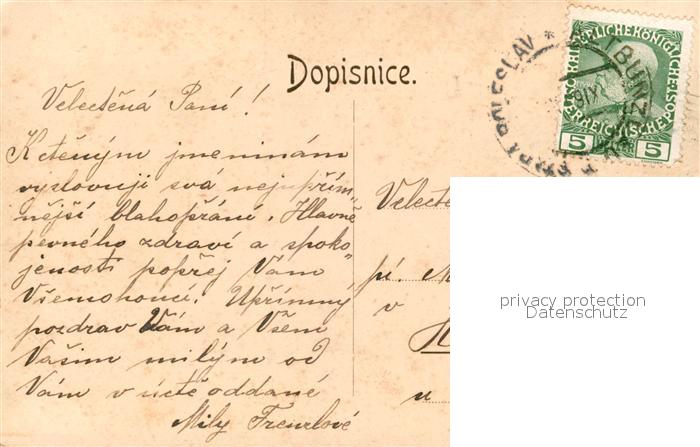 Dopisnice.
Velectěná Paní!
K ctěným jmeninám
vyslovuji svá nejupřím„
nější blahopřání. Hlavně
pevného zdraví a spoko„
jenosti popřej Vám
Všemohoucí. Upřímný
pozdrav Vám a Všem
Vašim milým od
Vám v úctě oddané
Mily
Velectě
pí.
v
u
5 5
privacy protection
Datenschutz